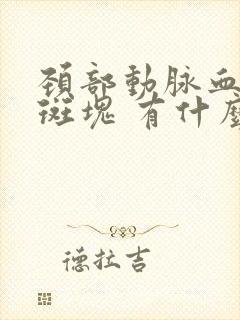 頚部動脉血
斑塊 有什
德拉吉